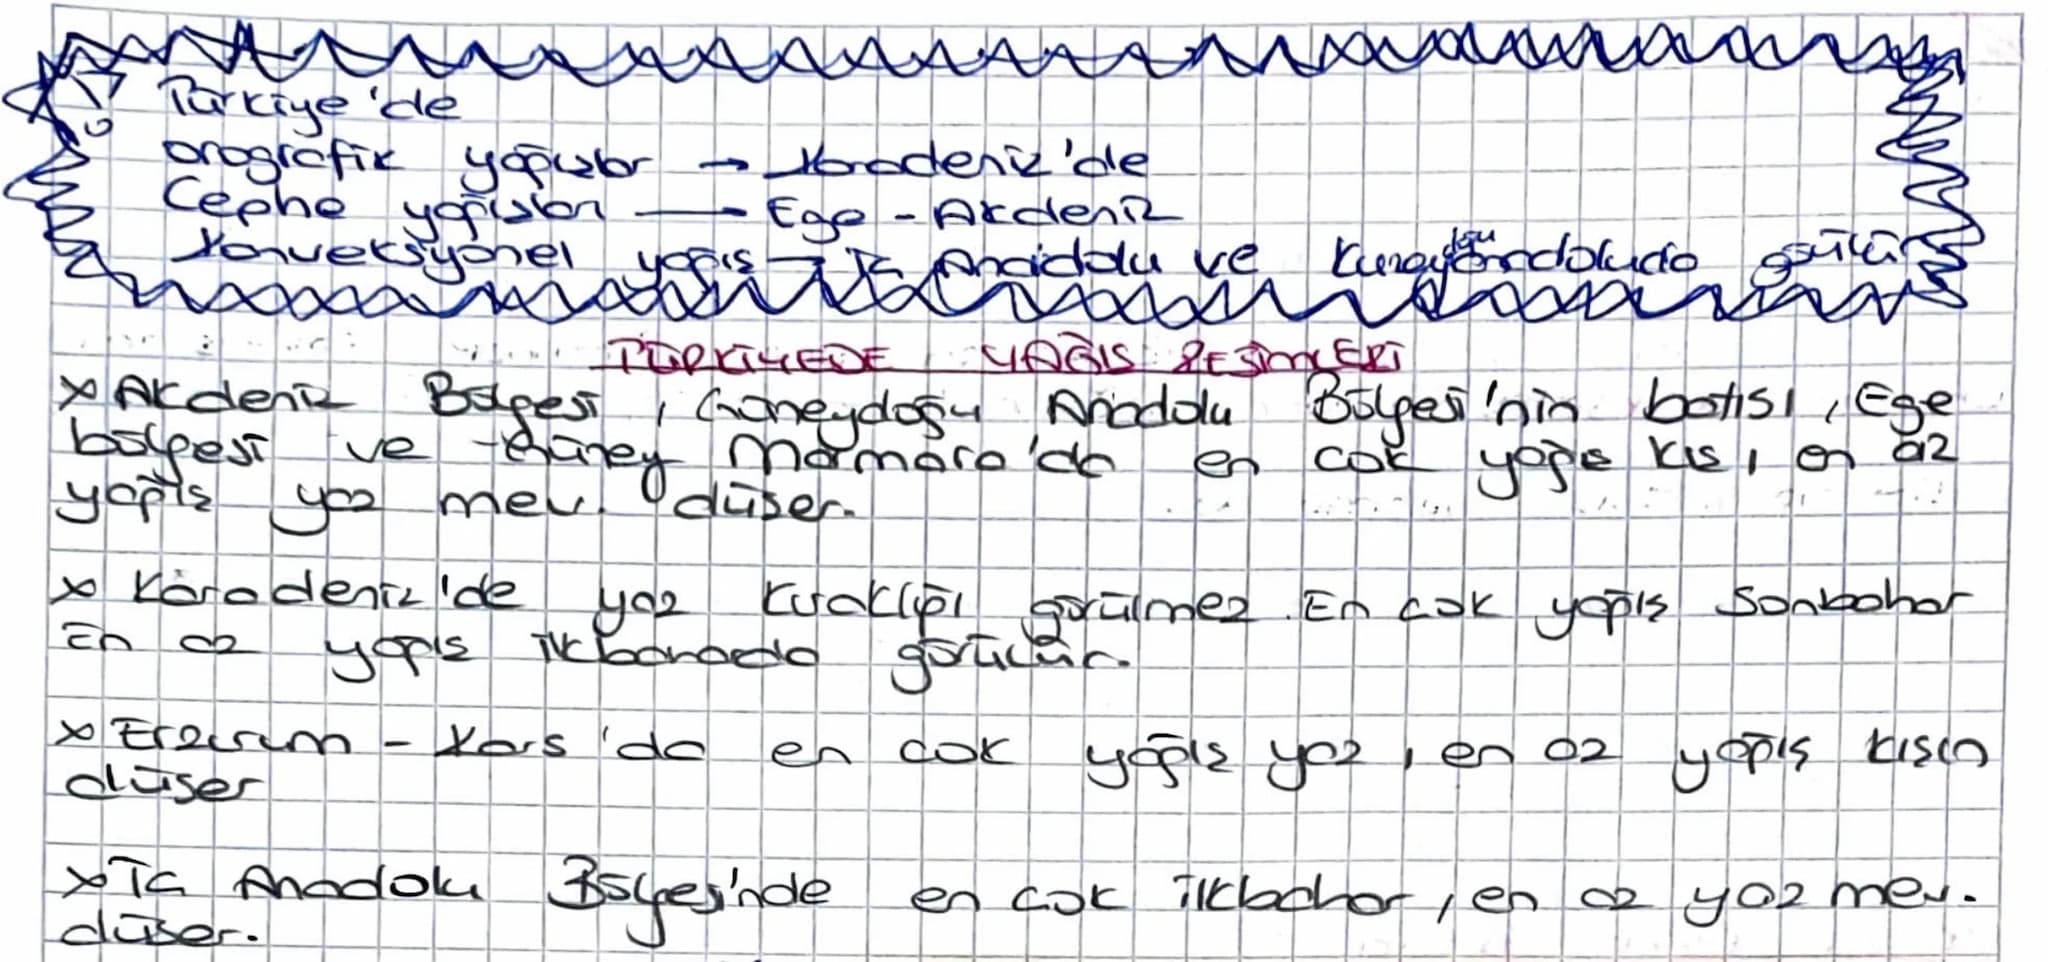 Türkiye'de
orografik yağışlar → Karadeniz'de
Cephe yağışları → Ege - Akdeniz
Konveksyonel yağış → İç Anadolu ve Kuzeydoğu Anadoluda görülür
TÜRKİYEDE YAĞIŞ REJİMLERİ
x Akdeniz Bölgesi, Güneydoğu Anadolu Bölgesi'nin batısı, Ege
bölgesi ve Güney Marmara'da en çok yağış kış, en az
yağış yaz mev. düşer.
x Karadeniz'de yaz kuraklığı görülmez. En çok yağış Sonbahar
En az yağış ilkbaharda görülür.
x Erzurum - Kars'da en çok yağış yaz, en az yağış kışın
düşer
x İç Anadolu Bölgesi'nde en çok ilkbahar, en az yaz mev.
düşer.